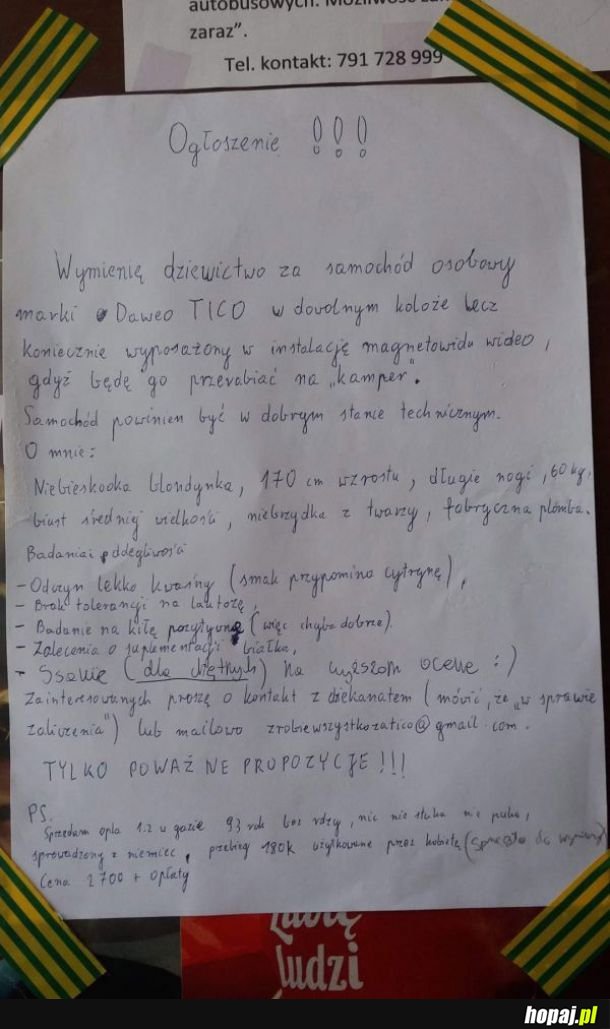 autobusowych. Możliwość
zaraz”.
Tel. kontakt: 791 728 999
Ogłoszenie !!!
Wymienię dziewictwo za samochód osobowy
marki Daweo TICO w dowolnym koloże lecz
koniecznie wyposażony w instalację magnetowidu wideo,
gdyż będę go przerabiać na „kamper".
Samochód powinien być w dobrym stanie technicznym.
O mnie:
Niebieskooka blondynka, 170 cm wzrostu, długie nogi, 60 kg,
biust średniej wielkości, niebrzydka z twarzy, fabryczna plomba.
Badania i dolegliwości
- Odczyn lekko kwaśny (smak przypomina cytrynę),
- Brak tolerancji na laktozę,
- Badanie na kiłę pozytywne (więc chyba dobrze).
- Zalecenia o suplementacji białka,
- Ssanie (dla chętnych) na wyższom ocenę :)
Zainteresowanych proszę o kontakt z dziekanatem (mówić, że „w sprawie
zaliczenia") lub mailowo zrobiewszystkozatico@gmail.com.
TYLKO POWAŻNE PROPOZYCJE !!!
PS.
Sprzedam opla 1.2 w gazie 93 rok bez rdzy, nic nie stuka nie puka,
sprowadzony z niemiec, przebieg 180k użytkowane przez kobietę (sprzęgło do wymiany)
Cena 2700 + opłaty
ludzi
hopaj.pl